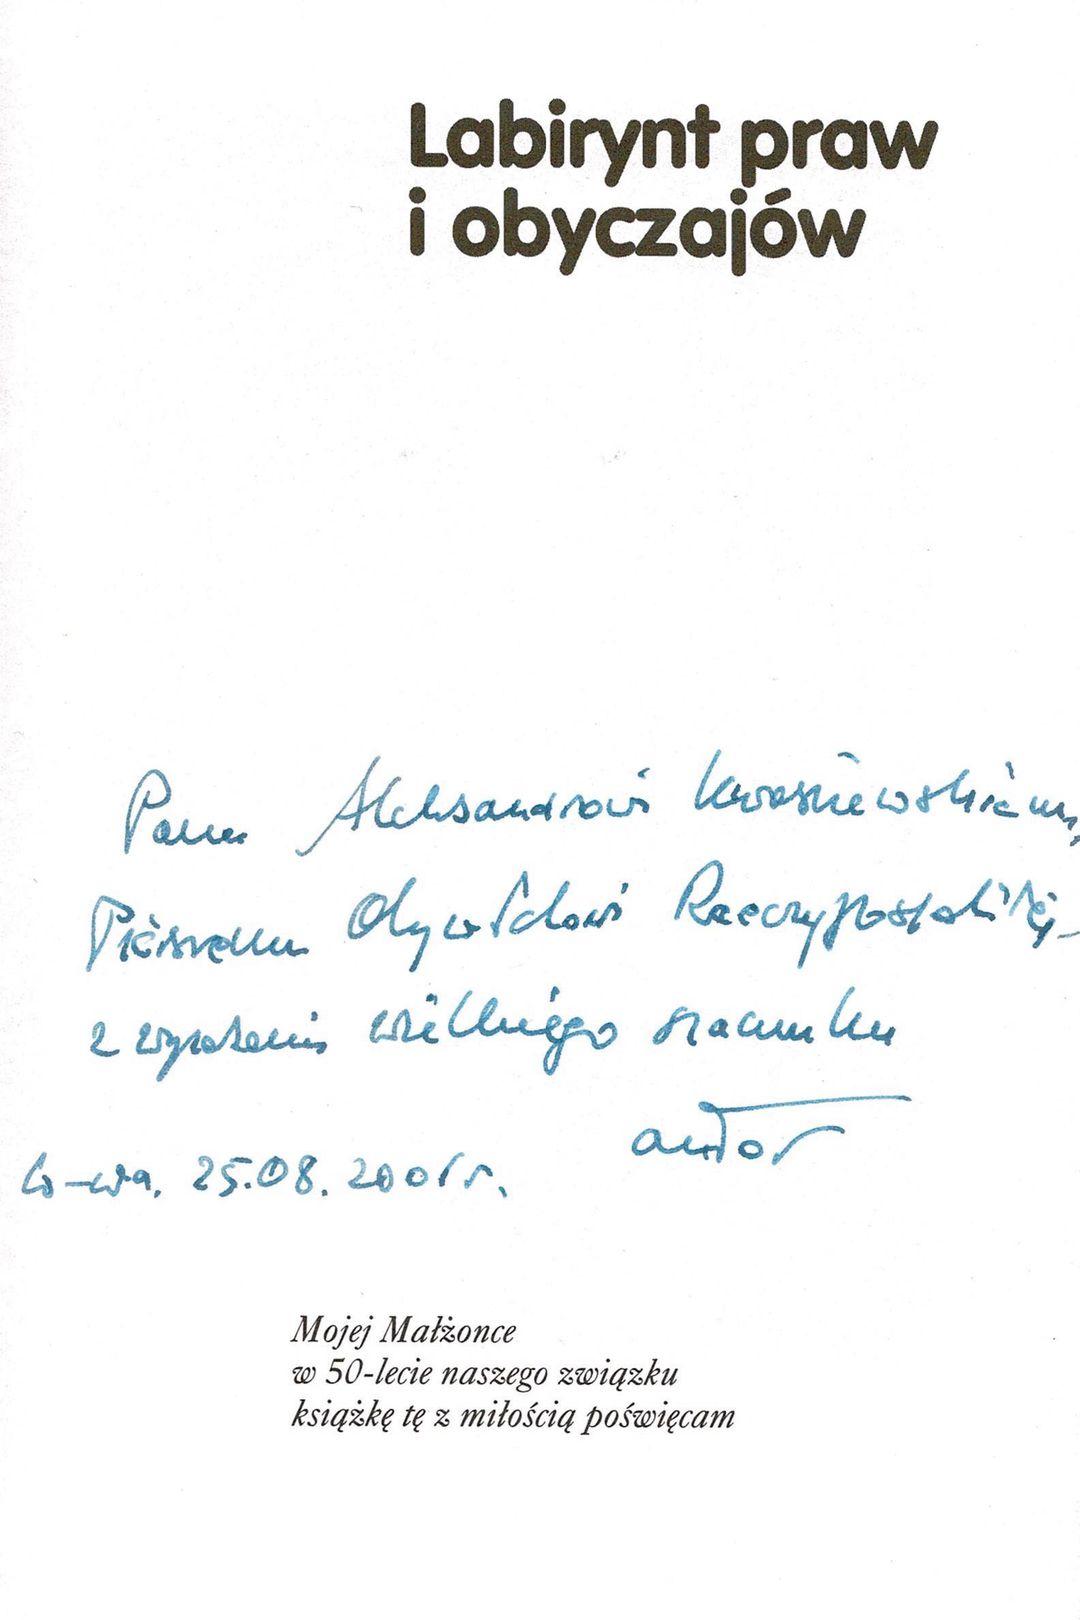 Labirynt praw
i obyczajów
Panu Aleksandrowi Kwaśniewskiemu,
Pierwszemu Obywatelowi Rzeczypospolitej
z wyrazami wielkiego szacunku
autor
W-wa, 25.08.2001 r.
Mojej Małżonce
w 50-lecie naszego związku
książkę tę z miłością poświęcam